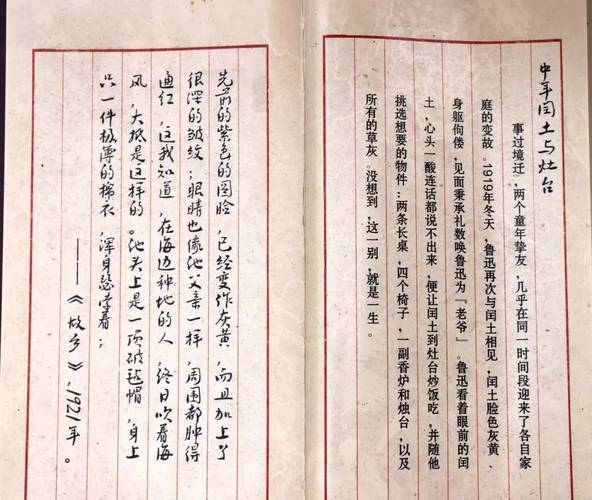 中年闰土与灶台
事过境迁，两个童年挚友，几乎在同一时间段迎来了各自家
庭的变故。1919年冬天，鲁迅再次与闰土相见，闰土脸色灰黄、
身躯佝偻，见面秉承礼数唤鲁迅为『老爷』。鲁迅看着眼前的闰
土，心头一酸连话都说不出来，便让闰土到灶台炒饭吃，并随他
挑选想要的物件：两条长桌，四个椅子，一副香炉和烛台，以及
所有的草灰。没想到，这一别，就是一生。
先前的紫色的圆脸，已经变作灰黄，而且加上了
很深的皱纹；眼睛也像他父亲一样，周围都肿得
通红，这我知道，在海边种地的人，终日吹着海
风，大抵是这样的。他头上是一顶破毡帽，身上
只一件极薄的棉衣，浑身瑟索着；
——《故乡》，1921年。